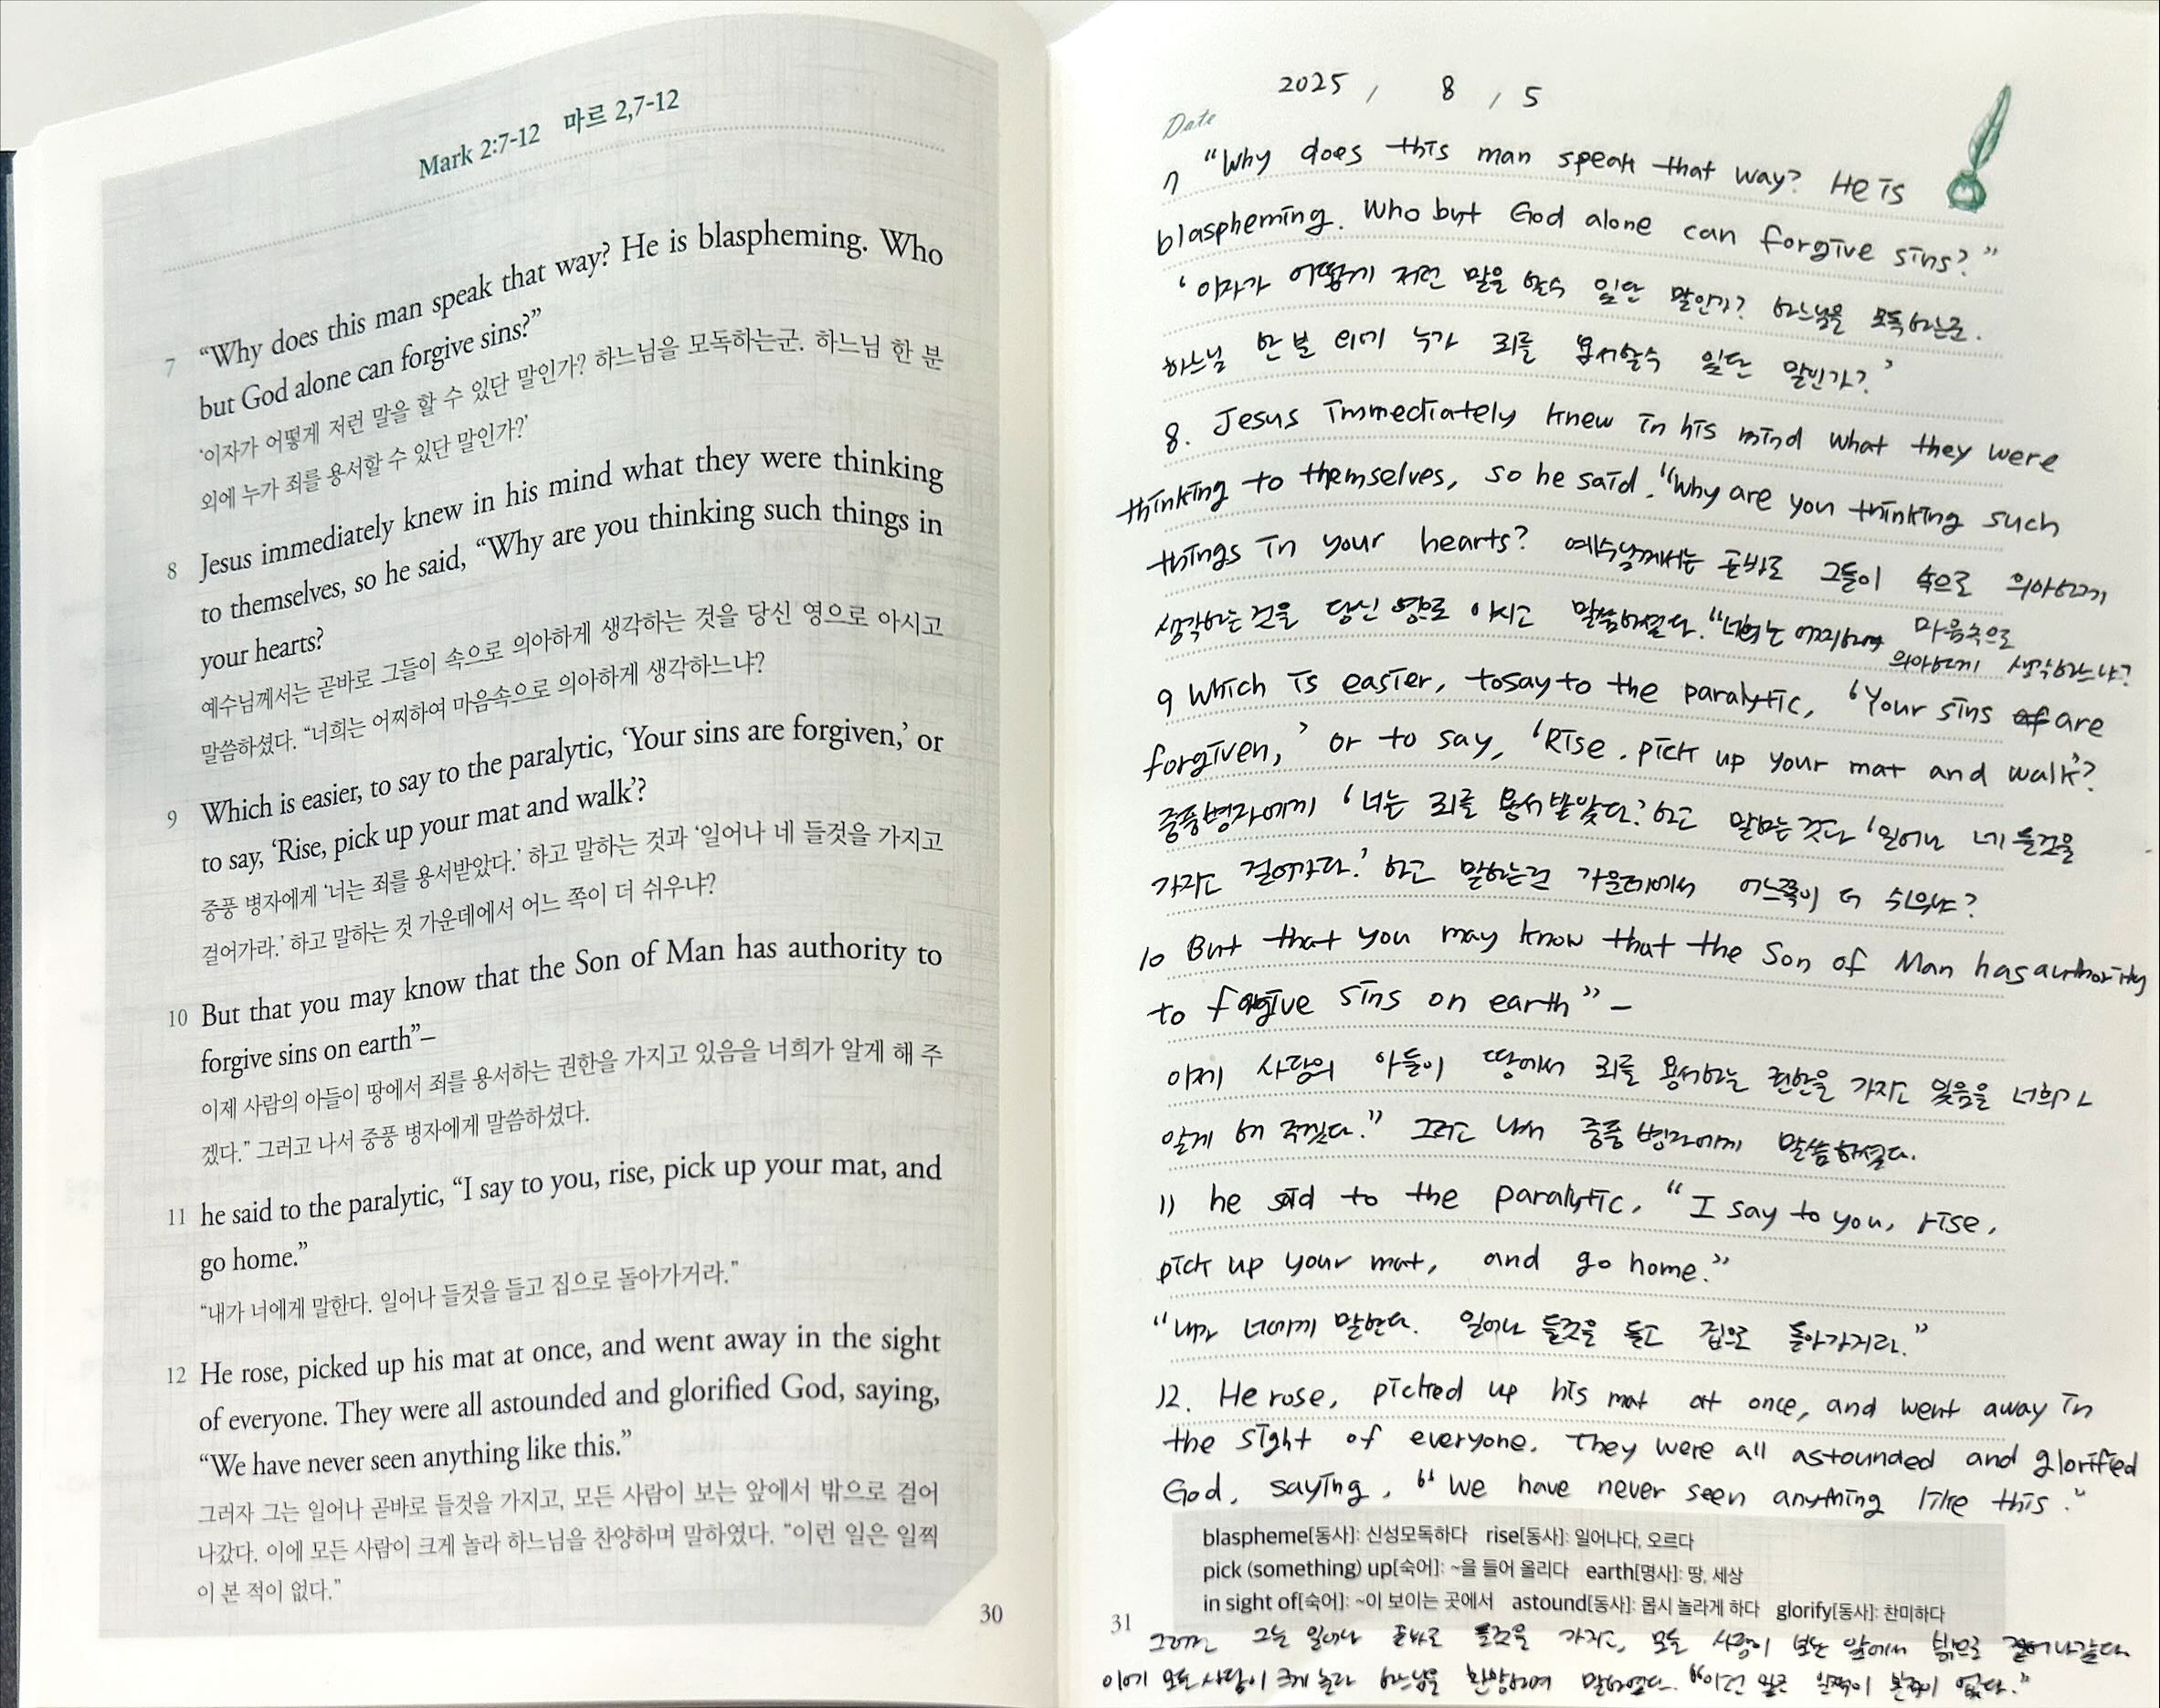 Mark 2:7-12 마르 2,7-12
7 “Why does this man speak that way? He is blaspheming. Who
but God alone can forgive sins?”
‘이자가 어떻게 저런 말을 할 수 있단 말인가? 하느님을 모독하는군. 하느님 한 분
외에 누가 죄를 용서할 수 있단 말인가?’
8 Jesus immediately knew in his mind what they were thinking
to themselves, so he said, “Why are you thinking such things in
your hearts?
예수님께서는 곧바로 그들이 속으로 의아하게 생각하는 것을 당신 영으로 아시고
말씀하셨다. “너희는 어찌하여 마음속으로 의아하게 생각하느냐?
9 Which is easier, to say to the paralytic, ‘Your sins are forgiven,’ or
to say, ‘Rise, pick up your mat and walk’?
중풍 병자에게 ‘너는 죄를 용서받았다.’ 하고 말하는 것과 ‘일어나 네 들것을 가지고
걸어가라.’ 하고 말하는 것 가운데에서 어느 쪽이 더 쉬우냐?
10 But that you may know that the Son of Man has authority to
forgive sins on earth”–
이제 사람의 아들이 땅에서 죄를 용서하는 권한을 가지고 있음을 너희가 알게 해 주
겠다.” 그러고 나서 중풍 병자에게 말씀하셨다.
11 he said to the paralytic, “I say to you, rise, pick up your mat, and
go home.”
“내가 너에게 말한다. 일어나 들것을 들고 집으로 돌아가거라.”
12 He rose, picked up his mat at once, and went away in the sight
of everyone. They were all astounded and glorified God, saying,
“We have never seen anything like this.”
그러자 그는 일어나 곧바로 들것을 가지고, 모든 사람이 보는 앞에서 밖으로 걸어
나갔다. 이에 모든 사람이 크게 놀라 하느님을 찬양하며 말하였다. “이런 일은 일찍
이 본 적이 없다.”
30
Date 2025 / 8 / 5
7 “Why does this man speak that way? He is
blaspheming. Who but God alone can forgive sins?”
‘이자가 어떻게 저런 말을 할수 있단 말인가? 하느님을 모독하는군.
하느님 한 분 외에 누가 죄를 용서할수 있단 말인가?’
8. Jesus immediately knew in his mind what they were
thinking to themselves, so he said. “Why are you thinking such
things in your hearts? 예수님께서는 곧바로 그들이 속으로 의아하게
생각하는 것을 당신 영으로 아시고 말씀하셨다. “너희는 어찌하여 마음속으로
의아하게 생각하느냐?
9 Which is easier, to say to the paralytic, ‘Your sins are
forgiven,’ or to say, ‘Rise. pick up your mat and walk’?
중풍병자에게 ‘너는 죄를 용서 받았다.’ 하고 말하는 것과 ‘일어나 네 들것을
가지고 걸어가라.’ 하고 말하는것 가운데에서 어느쪽이 더 쉬우냐?
10 But that you may know that the Son of Man has authority
to forgive sins on earth” –
이제 사람의 아들이 땅에서 죄를 용서하는 권한을 가지고 있음을 너희가
알게 해 주겠다.” 그러고 나서 중풍 병자에게 말씀하셨다.
11 he said to the paralytic, “I say to you, rise,
pick up your mat, and go home.”
“내가 너에게 말한다. 일어나 들것을 들고 집으로 돌아가거라.”
12. He rose, picked up his mat at once, and went away in
the sight of everyone. They were all astounded and glorified
God, saying, “We have never seen anything like this.”
blaspheme[동사]: 신성모독하다 rise[동사]: 일어나다, 오르다
pick (something) up[숙어]: ~을 들어 올리다 earth[명사]: 땅, 세상
in sight of[숙어]: ~이 보이는 곳에서 astound[동사]: 몹시 놀라게 하다 glorify[동사]: 찬미하다
31
그러자 그는 일어나 곧바로 들것을 가지고, 모든 사람이 보는 앞에서 밖으로 걸어나갔다.
이에 모든 사람이 크게 놀라 하느님을 찬양하며 말하였다. “이런 일은 일찍이 본적이 없다.”